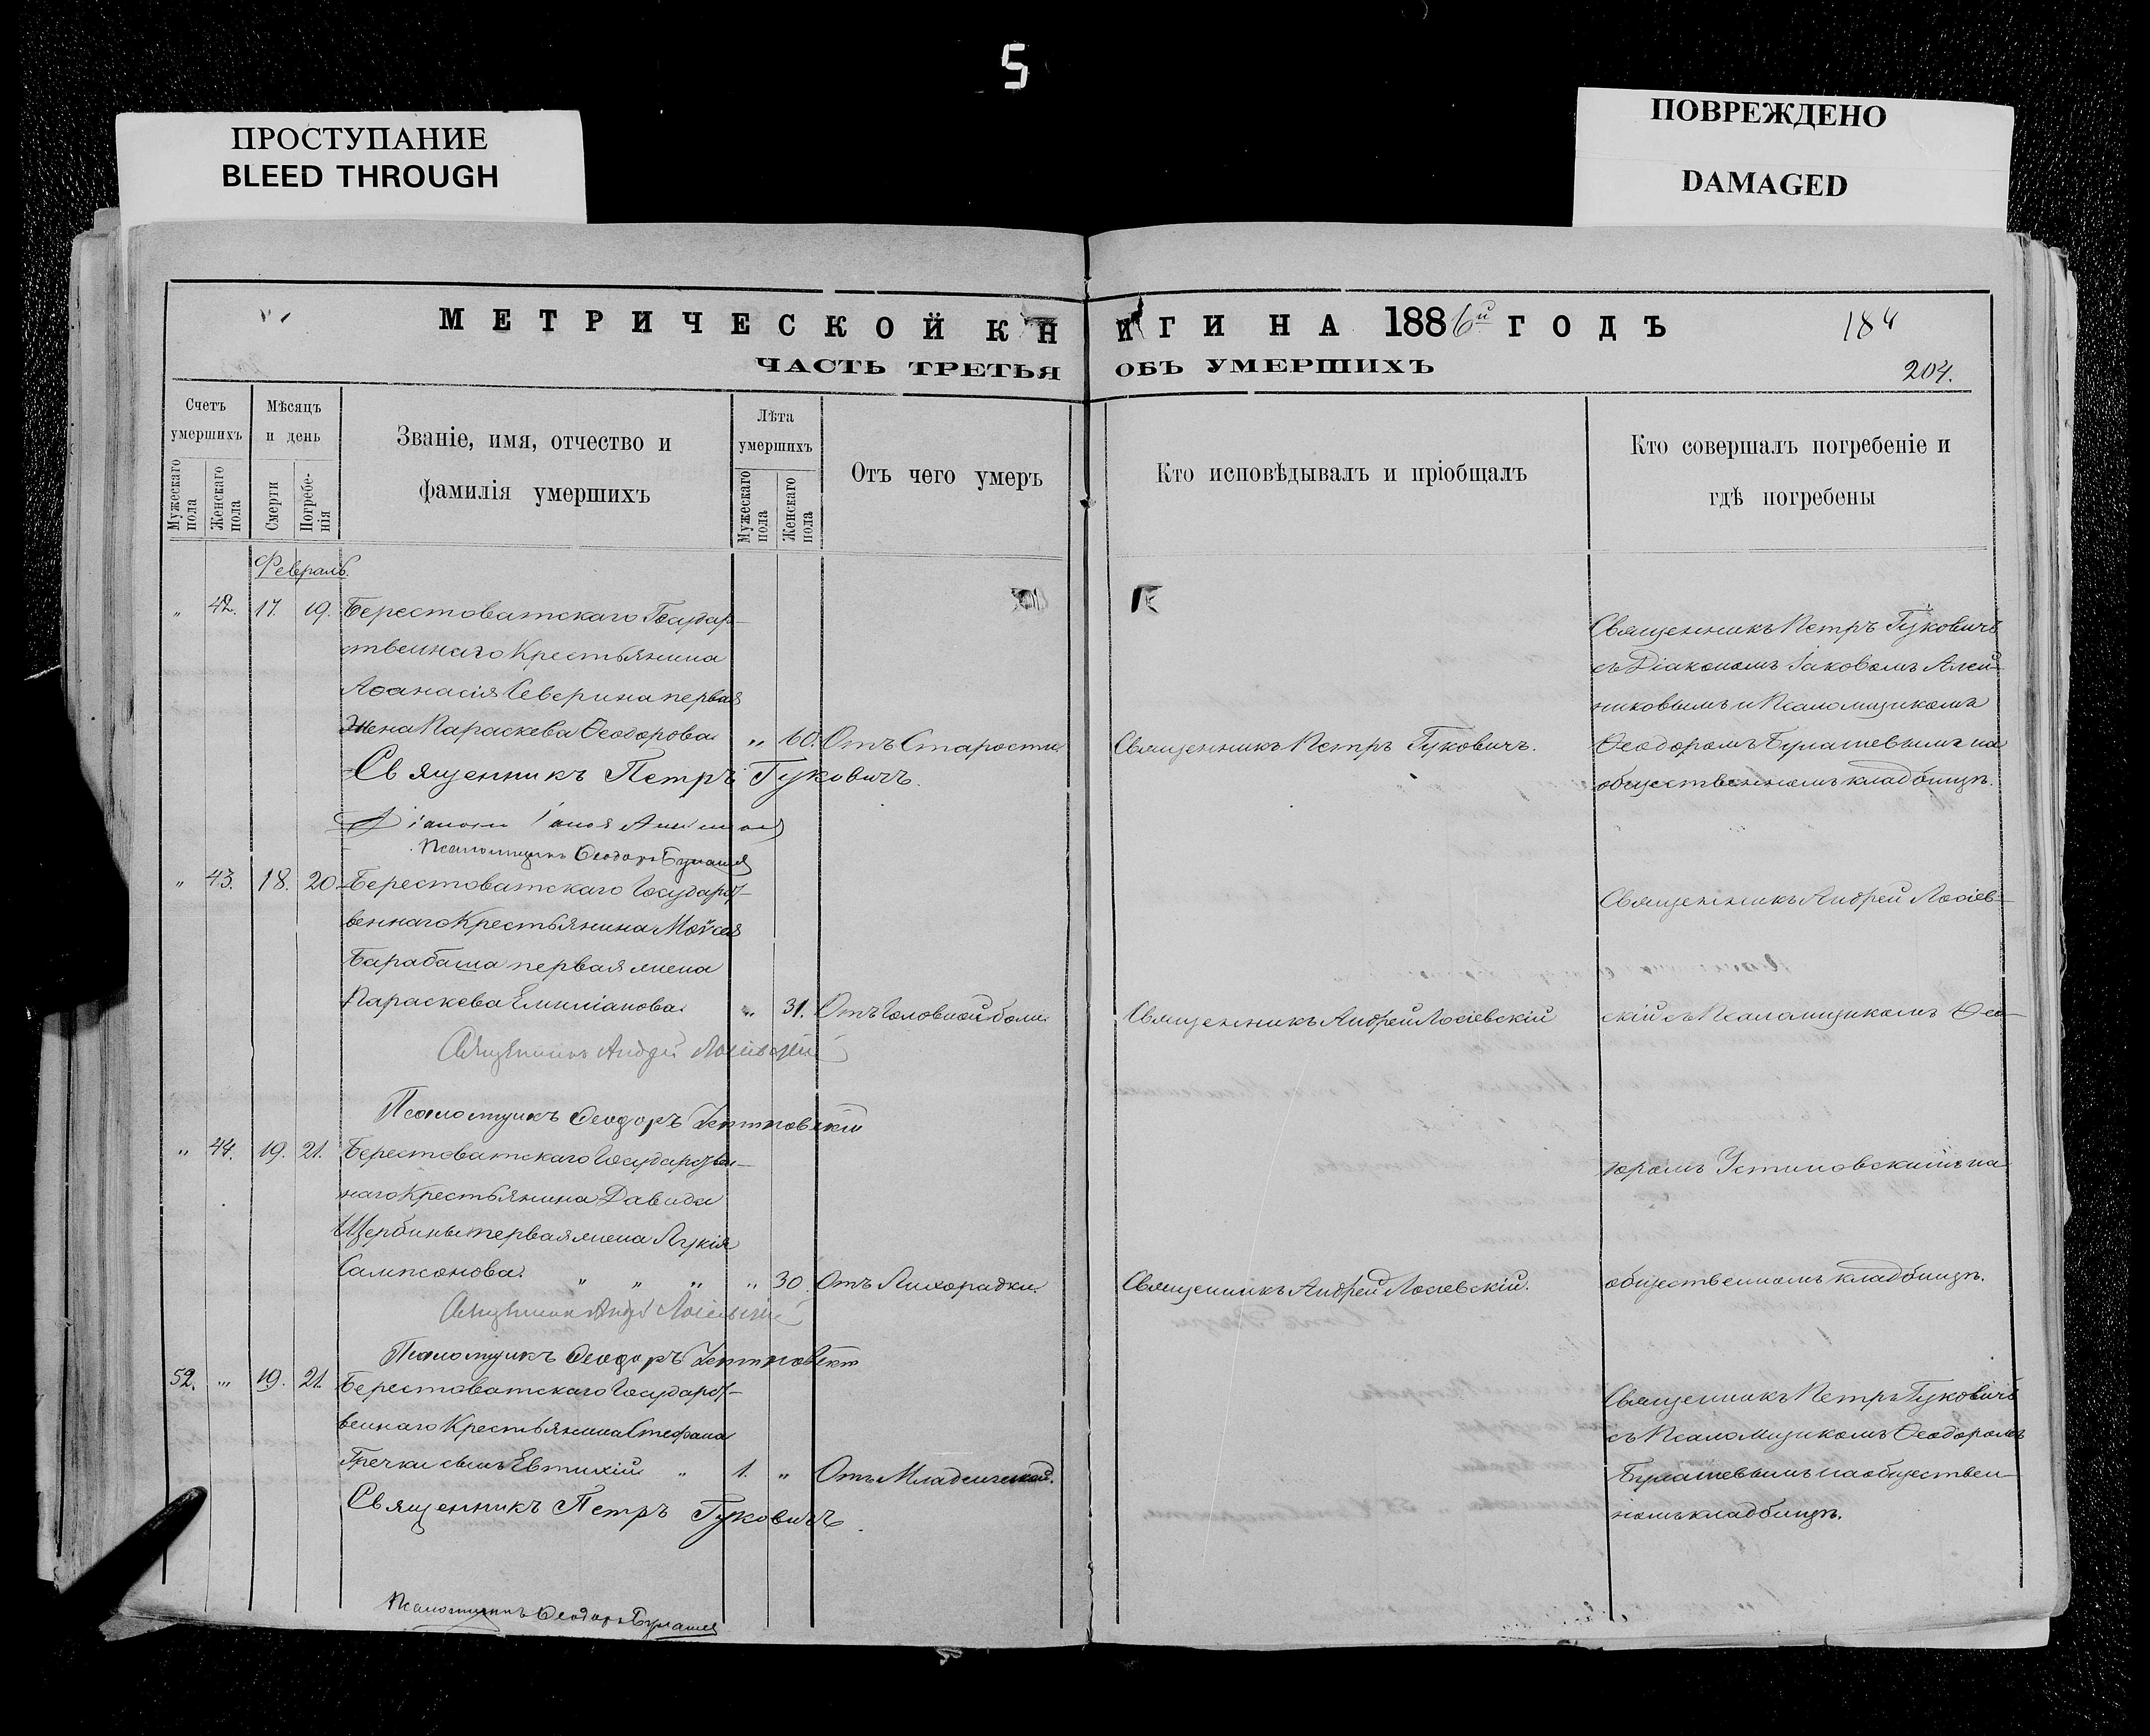 5
ПРОСТУПАНИЕ
BLEED THROUGH
ПОВРЕЖДЕНО
DAMAGED
МЕТРИЧЕСКОЙ КНИГИ НА 1886й ГОДЪ
184
ЧАСТЬ ТРЕТЬЯ ОБЪ УМЕРШИХЪ
204.
Счетъ умершихъ
Мужескаго пола
Женскаго пола
Мѣсяцъ и день
Смерти
Погребе-
нія
Званіе, имя, отчество и
фамилія умершихъ
Лѣта умершихъ
Мужескаго пола
Женскаго пола
Отъ чего умеръ
Кто исповѣдывалъ и пріобщалъ
Кто совершалъ погребеніе и
гдѣ погребены
Февраль.
„ 42. 17. 19. Берестоватскаго Государ-
ственнаго Крестьянина
Аѳанасія Северина первая
Жена Параскева Ѳеодорова „ 60. Отъ Старости
Священникъ Петръ Гуковичъ.
Священникъ Петръ Гуковичъ
съ Діакономъ Іаковомъ Алей-
никовымъ и Псаломщикомъ
Ѳеодоромъ Булашевымъ на
общественномъ кладбищѣ.
Священникъ Петръ Гуковичъ.
Псаломщикъ Ѳеодоръ Булашев
„ 43. 18. 20. Берестоватскаго Государст-
веннаго Крестьянина Моѵсея
Барабаша первая жена
Параскева Емиліанова. „ 31. Отъ Головной боли.
Священникъ Андрей Лосіевскій
Священникъ Андрей Лосіев-
скій съ Псаломщикомъ Ѳео-
Священникъ Андрей Лосіевскій
Псаломщикъ Ѳеодоръ Устиновскій
„ 44. 19. 21. Берестоватскаго Государствен-
наго Крестьянина Давида
Щербины первая жена Лукія
Сампсонова. „ „ „ „ 30. Отъ Лихорадки.
Священникъ Андрей Лосіевскій.
доромъ Устиновскимъ на
общественномъ кладбищѣ.
Священникъ Андрей Лосіевскій
Псаломщикъ Ѳеодоръ Устиновскій
52. „ 19. 21. Берестоватскаго Государст-
веннаго Крестьянина Стефана
Гречки сынъ Евтихій „ 1. „ Отъ Младенческой.
Священникъ Петръ Гуковичъ
съ Псаломщикомъ Ѳеодоромъ
Булашевымъ на обществен-
номъ кладбищѣ.
Священникъ Петръ Гуковичъ.
Псаломщикъ Ѳеодоръ Булашев